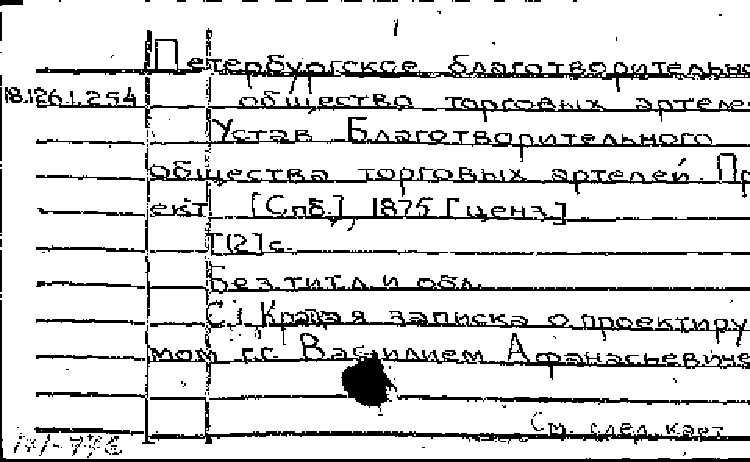 Петербургское благотворительно
18.126.1.254 общество торговых артеле
Устав Благотворительного
общества торговых артелей. Пр
ект [Спб.], 1875 [ценз.]
[12] с.
Без тит. л. и обл.
С.1 Краткая записка о проектиру
мом г.г. Василием Афанасьевиче
См. след. карт